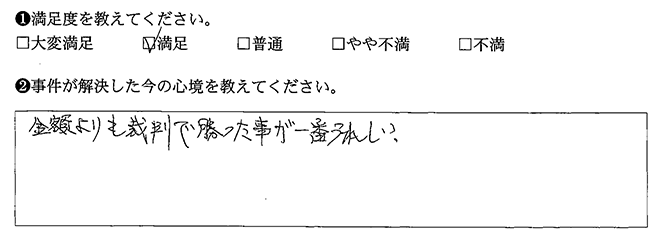 ❶満足度を教えてください。
□大変満足 ☑満足 □普通 □やや不満 □不満
❷事件が解決した今の心境を教えてください。
金額よりも裁判で勝った事が一番うれしい。